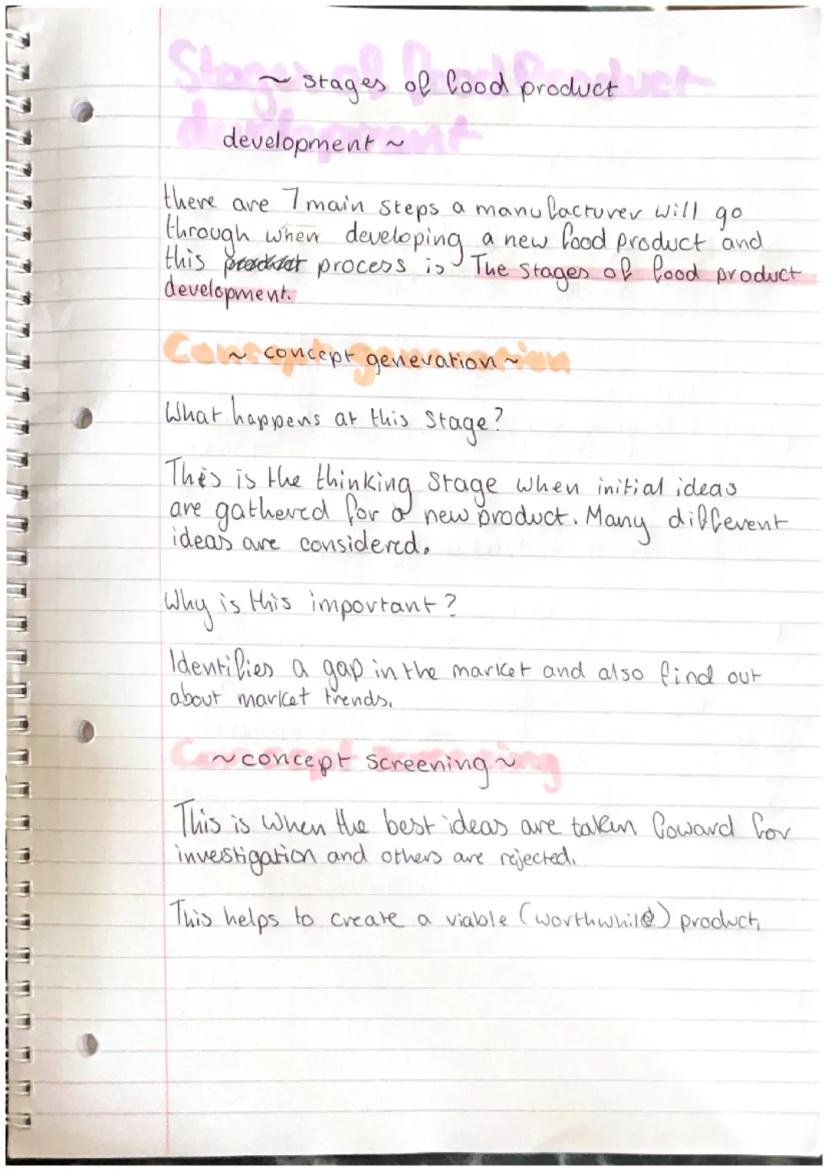 Stages of food Product
~ stages of food product
development
development ~
there are 7 main steps a manufacturer will go
through when developing a new food product and
this product process is The stages of food product
development.
Concept generation
~ concept generation ~
What happens at this stage?
This is the thinking stage when initial ideas
are gathered for a new product. Many different
ideas are considered.
Why is this important?
Identifies a gap in the market and also find out
about market trends.
Concept screening
~ concept screening ~
This is when the best ideas are taken foward for
investigation and others are rejected.
This helps to create a viable (worthwhile) product,